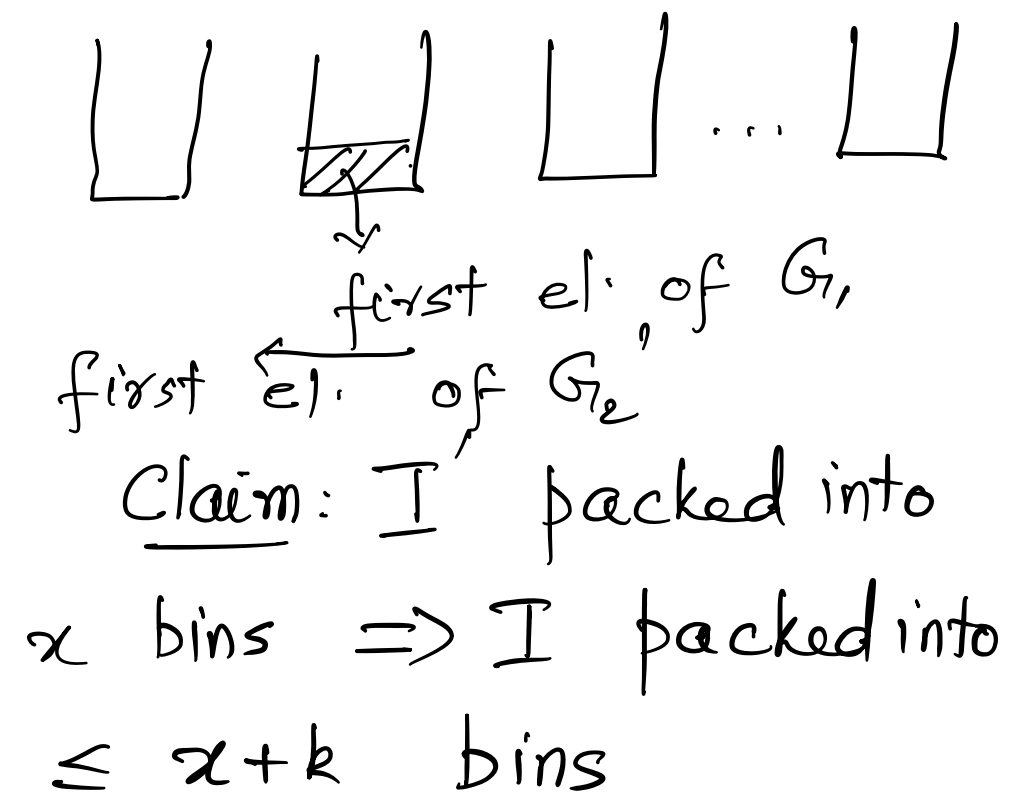 ...
first el. of G₁,
first el. of G₂'
Claim: I' packed into
x bins ⇒ I packed into
≤ x+k bins